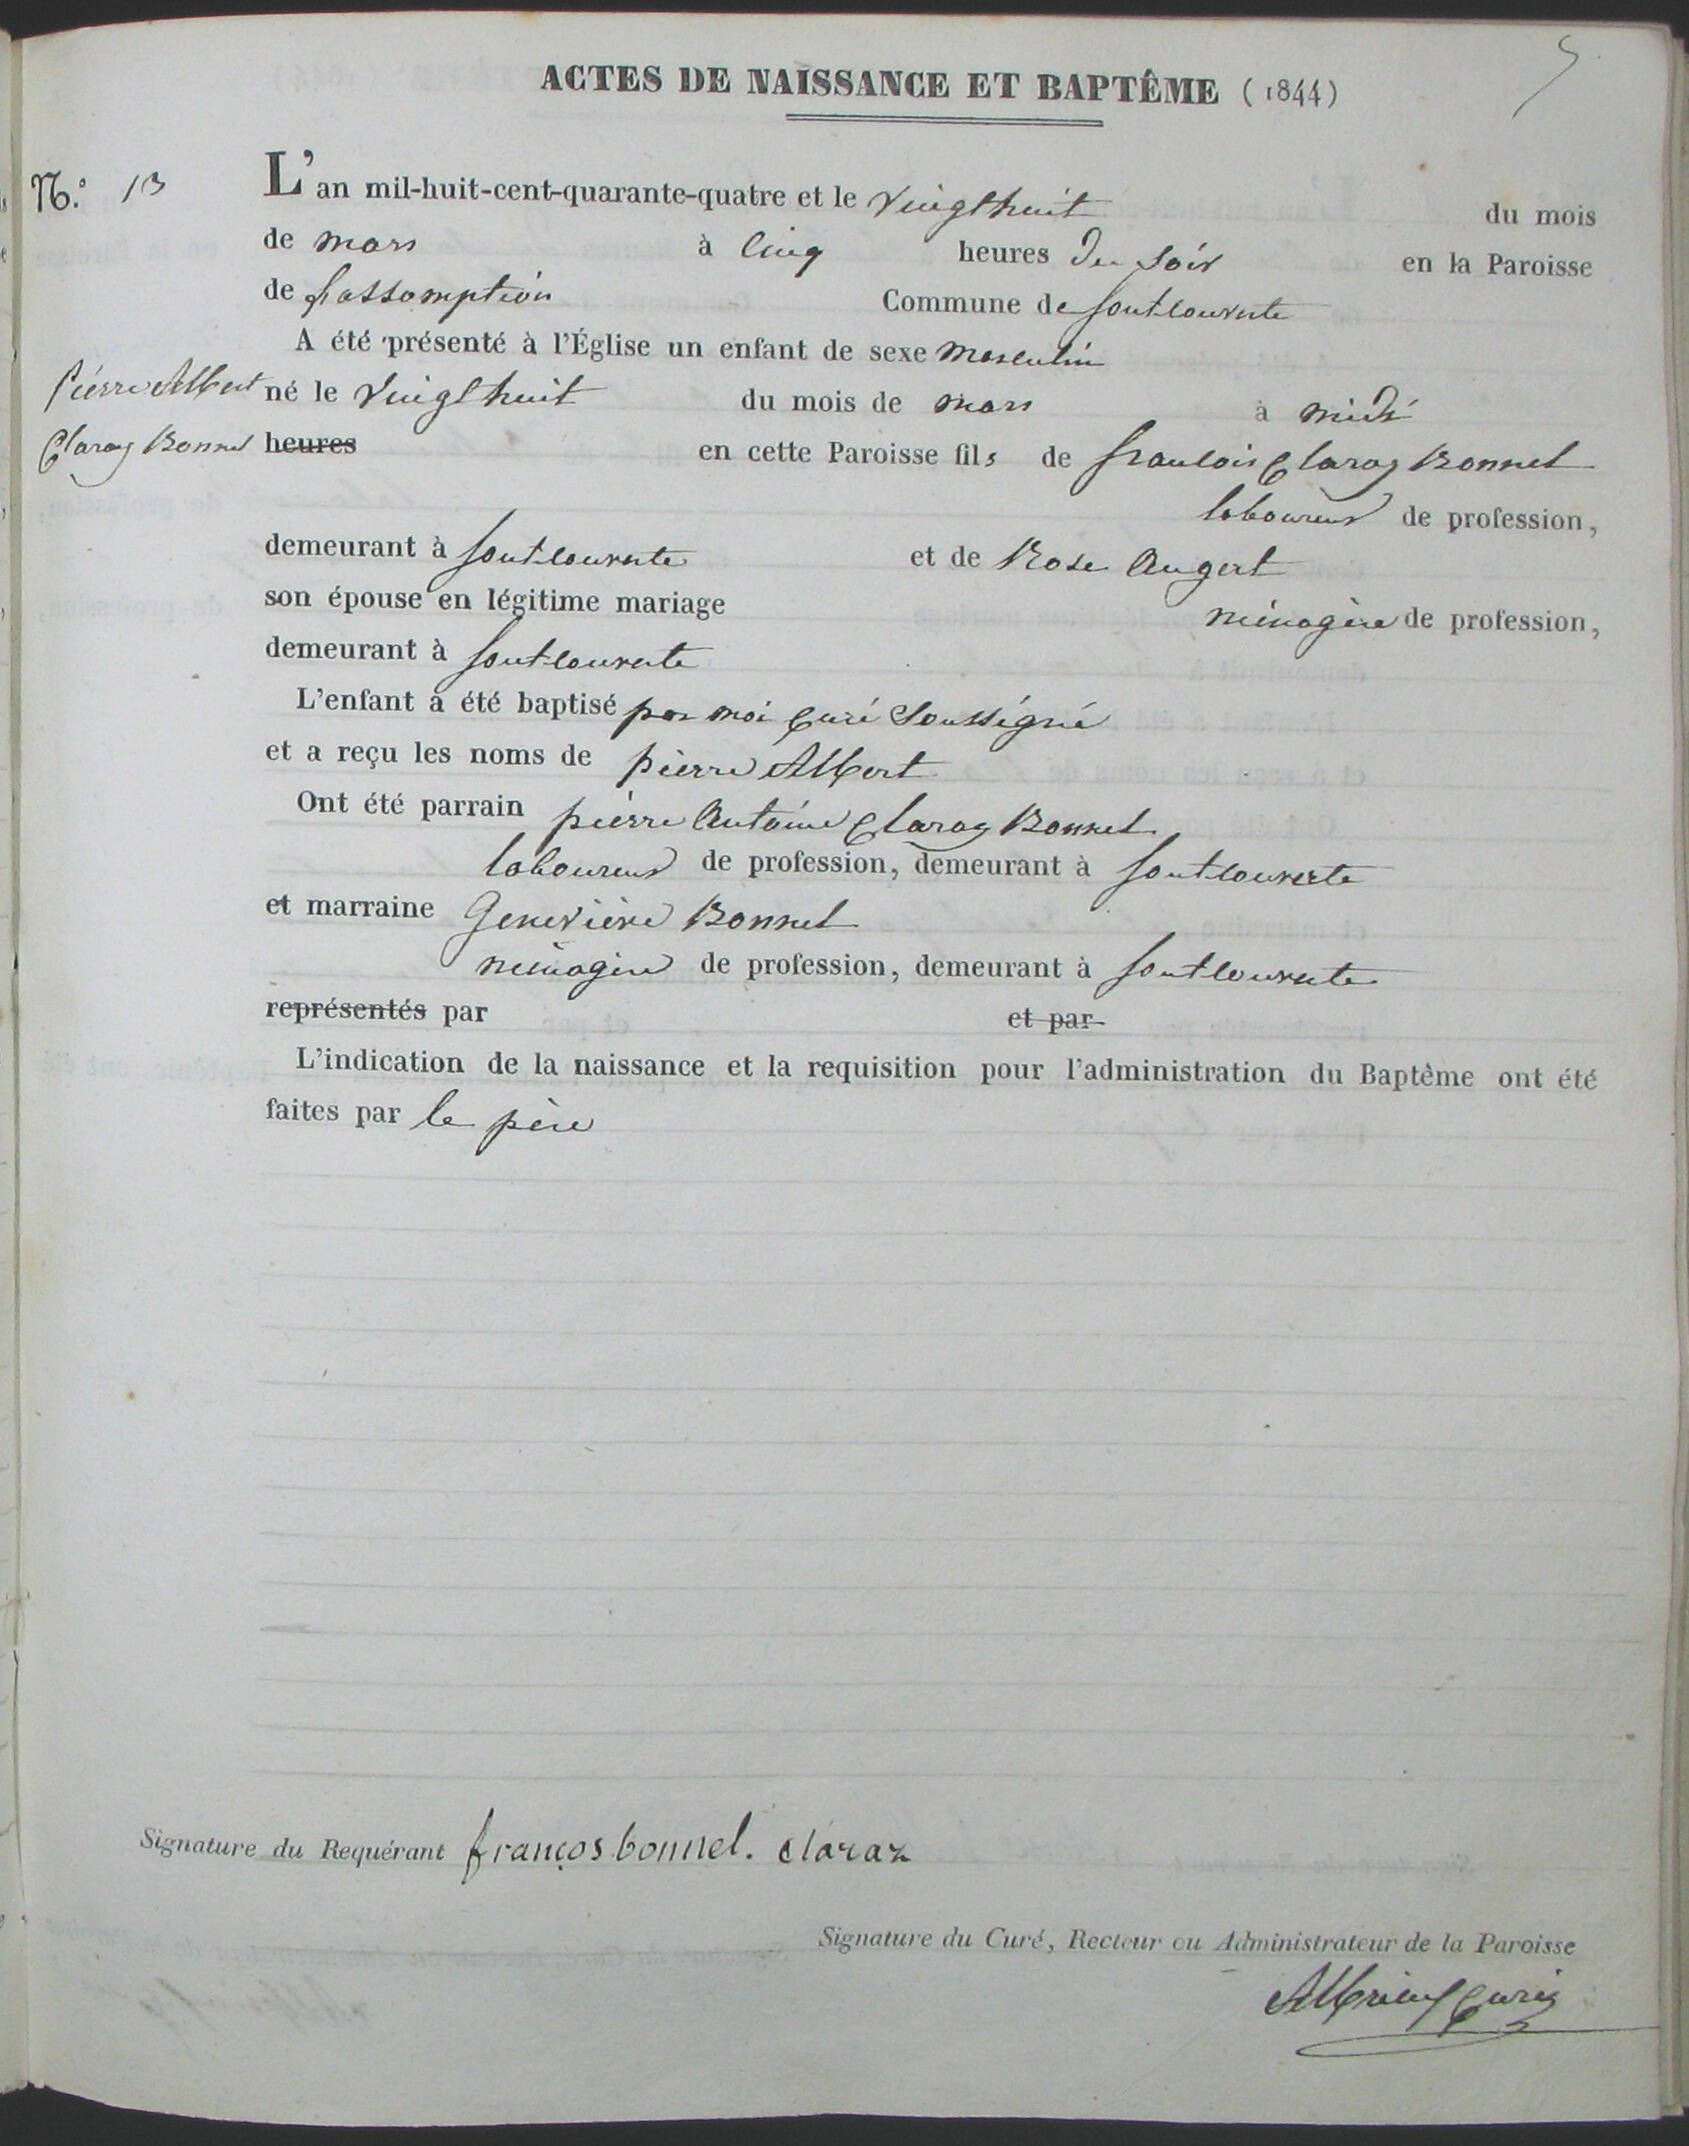 5
ACTES DE NAISSANCE ET BAPTÊME (1844)
N.º 13
L'an mil-huit-cent-quarante-quatre et le vingt huit du mois
de mars à cinq heures du soir en la Paroisse
de l'assomption Commune de fontcouverte
A été présenté à l'Église un enfant de sexe masculin
pierre Albert
Claraz Bonnel
né le vingt huit du mois de mars à midi
heures en cette Paroisse fils de francois Claraz Bonnel
laboureur de profession,
demeurant à fontcouverte et de Rose Augert
son épouse en légitime mariage ménagère de profession,
demeurant à fontcouverte
L'enfant a été baptisé par moi curé soussigné
et a reçu les noms de pierre Albert
Ont été parrain pierre Antoine Claraz Bonnel
laboureur de profession, demeurant à fontcouverte
et marraine Genevière Bonnel
ménagère de profession, demeurant à fontcouverte
représentés par et par
L'indication de la naissance et la requisition pour l'administration du Baptême ont été
faites par le père
Signature du Requérant franços bonnel. claraz
Signature du Curé, Recteur ou Administrateur de la Paroisse
Albrieux curé